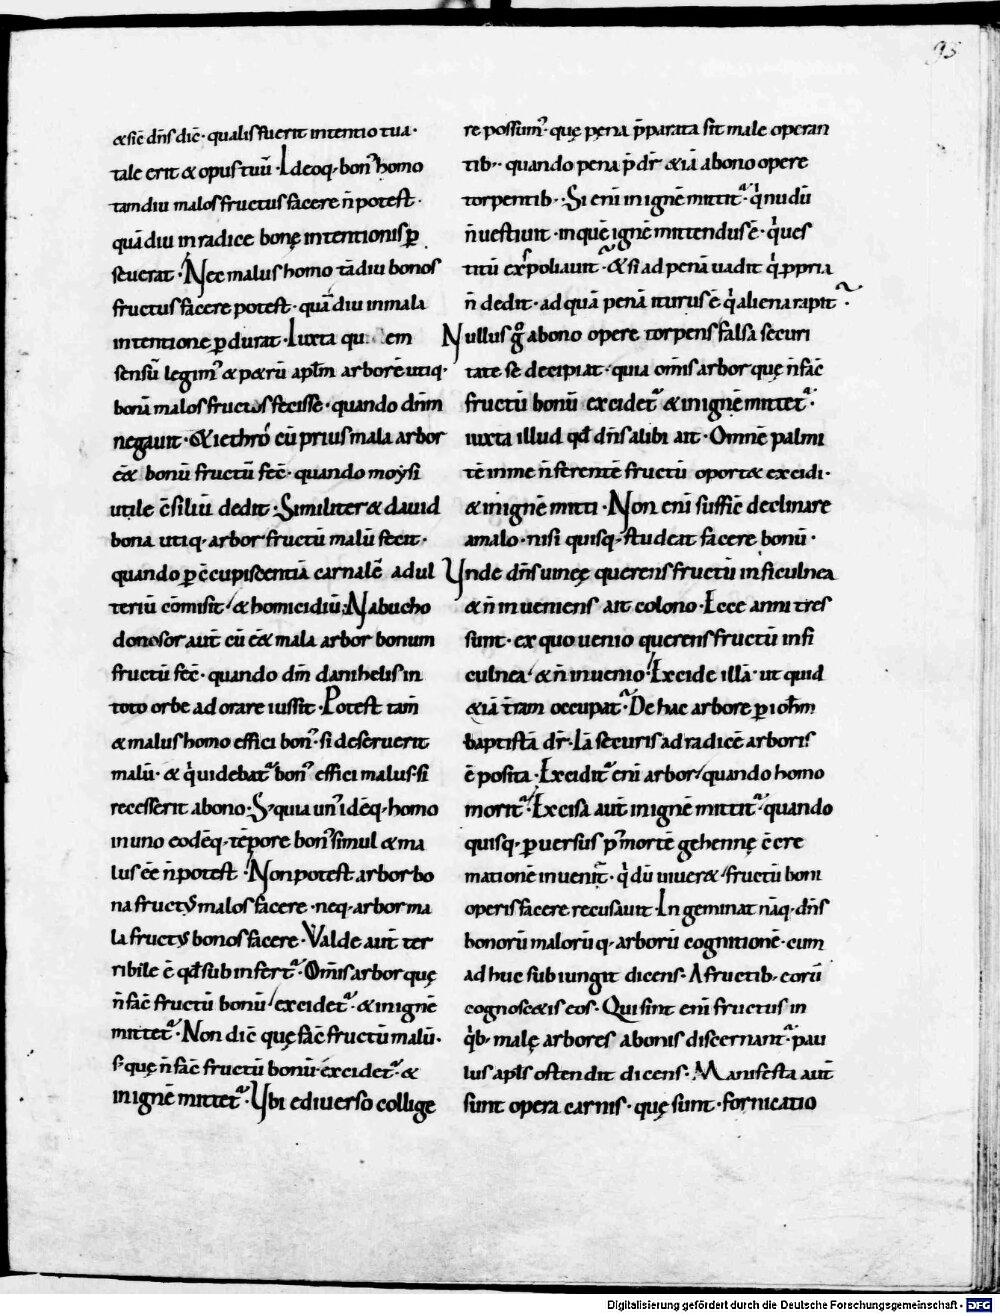 95
&sic̄ dñs dic̄· qualis fuerit intentio tua·
tale erit & opus tuū· Ideoq· bon᷒ homo
tamdiu malos fructus facere ñ potest·
quādiu in radice bonę intentionis ꝑ
seuerat· Nec malus homo tādiu bonos
fructus facere potest· quādiu in mala
intentione ꝑdurat· Iuxta qu em
sensū legim᷒ & petrū apl̄m arborē utiq·
bonā malos fructos fecisse· quando dn̄m
negauit· & iethro cū prius mala arbor
eēt bonū fructū fec̄· quando moẏsi
utile c̄siliū dedit· Similiter & dauid
bona utiq· arbor fructū malū fecit·
quando ꝑ c̄cupiscentiā carnalē adul
teriū cōmisit· & homicidiū; Nabucho
donosor aut̄ cū eēt mala arbor bonum
fructū fec̄· quando dm̄ danihelis in
toto orbe adorare iussit· Potest tam̄
& malus homo effici bon᷒· si deseruerit
malū· & q̇ uidebat᷑ bon᷒ effici malus· si
recesserit a bono· S; quia un᷒ idēq· homo
in uno eodēq· tēpore bon᷒ simul & ma
lus eē ñ potest· Non potest arbor bo
na fruct᷒ malos facere· neq· arbor ma
la fruct᷒ bonos facere· Valde aut̄ ter
ribile ē qd̄ subinfert᷑· Om̄is arbor quę
ñ fac̄ fructū bonū· excidet᷑· & in ignē
mittet᷑· Non dic̄ quę fac̄ fructū malū·
s; quę ñ fac̄ fructū bonū· excidet᷑· &
in ignē mittet᷑· Vbi e diuerso collige
re possum᷒· quę pena p̄parata sit male operan
tib·· quando pena p̄dr̄ &iā a bono opere
torpentib·· Si eni in ignē mittit᷑ q̇ nudū
ñ uestiuit· in quę ignē mittendus ē· q̇ ues
titū exspoliauit᷑· & si ad penā uadit q̇ ꝓpria
ñ dedit· ad quā penā iturus ē q̇ aliena rapit᷑·
Nullus g° a bono opere torpens falsa securi
tate se decipiat· quia om̄is arbor quę ñ fac̄
fructū bonū excidet᷑ & in ignē mittet᷑·
iuxta illud qd̄ dñs alibi ait· Omnē palmi
tē in me ñ ferentē fructū oport& excidi·
& in ignē mitti· Non eni suffic̄ declinare
a malo· nisi quisq· studeat facere bonū·
Vnde dñs uineę querens fructū in ficulnea
& ñ inueniens ait colono· Ecce anni tres
sunt· ex quo uenio querens fructū in fi
culnea· & ñ inuenio· Excide illā· ut quid
&iā trām occupat᷑· De hac arbore ꝑ ioh̄m
baptistā dr̄· Iā securis ad radicē arboris
ē posita· Excidit᷑ eni arbor· quando homo
morit᷑· Excisa aut̄ in ignē mittit᷑· quando
quisq· ꝑuersus p᷒ mortē gehennę c̄cre
mationē inuenit᷑· q̇ dū uiuer&· fructū boni
operis facere recusauit· Ingeminat nāq· dñs
bonorū malorūq· arborū cognitionē· cum
adhuc subiungit dicens· A fructib· eorū
cognoscetis eos· Qui sint eni fructus in
q̇b· malę arbores a bonis discernant᷑· pau
lus apl̄s ostendit dicens· Manifesta aut̄
sunt opera carnis· quę sunt· fornicatio
Digitalisierung gefördert durch die Deutsche Forschungsgemeinschaft - DFG